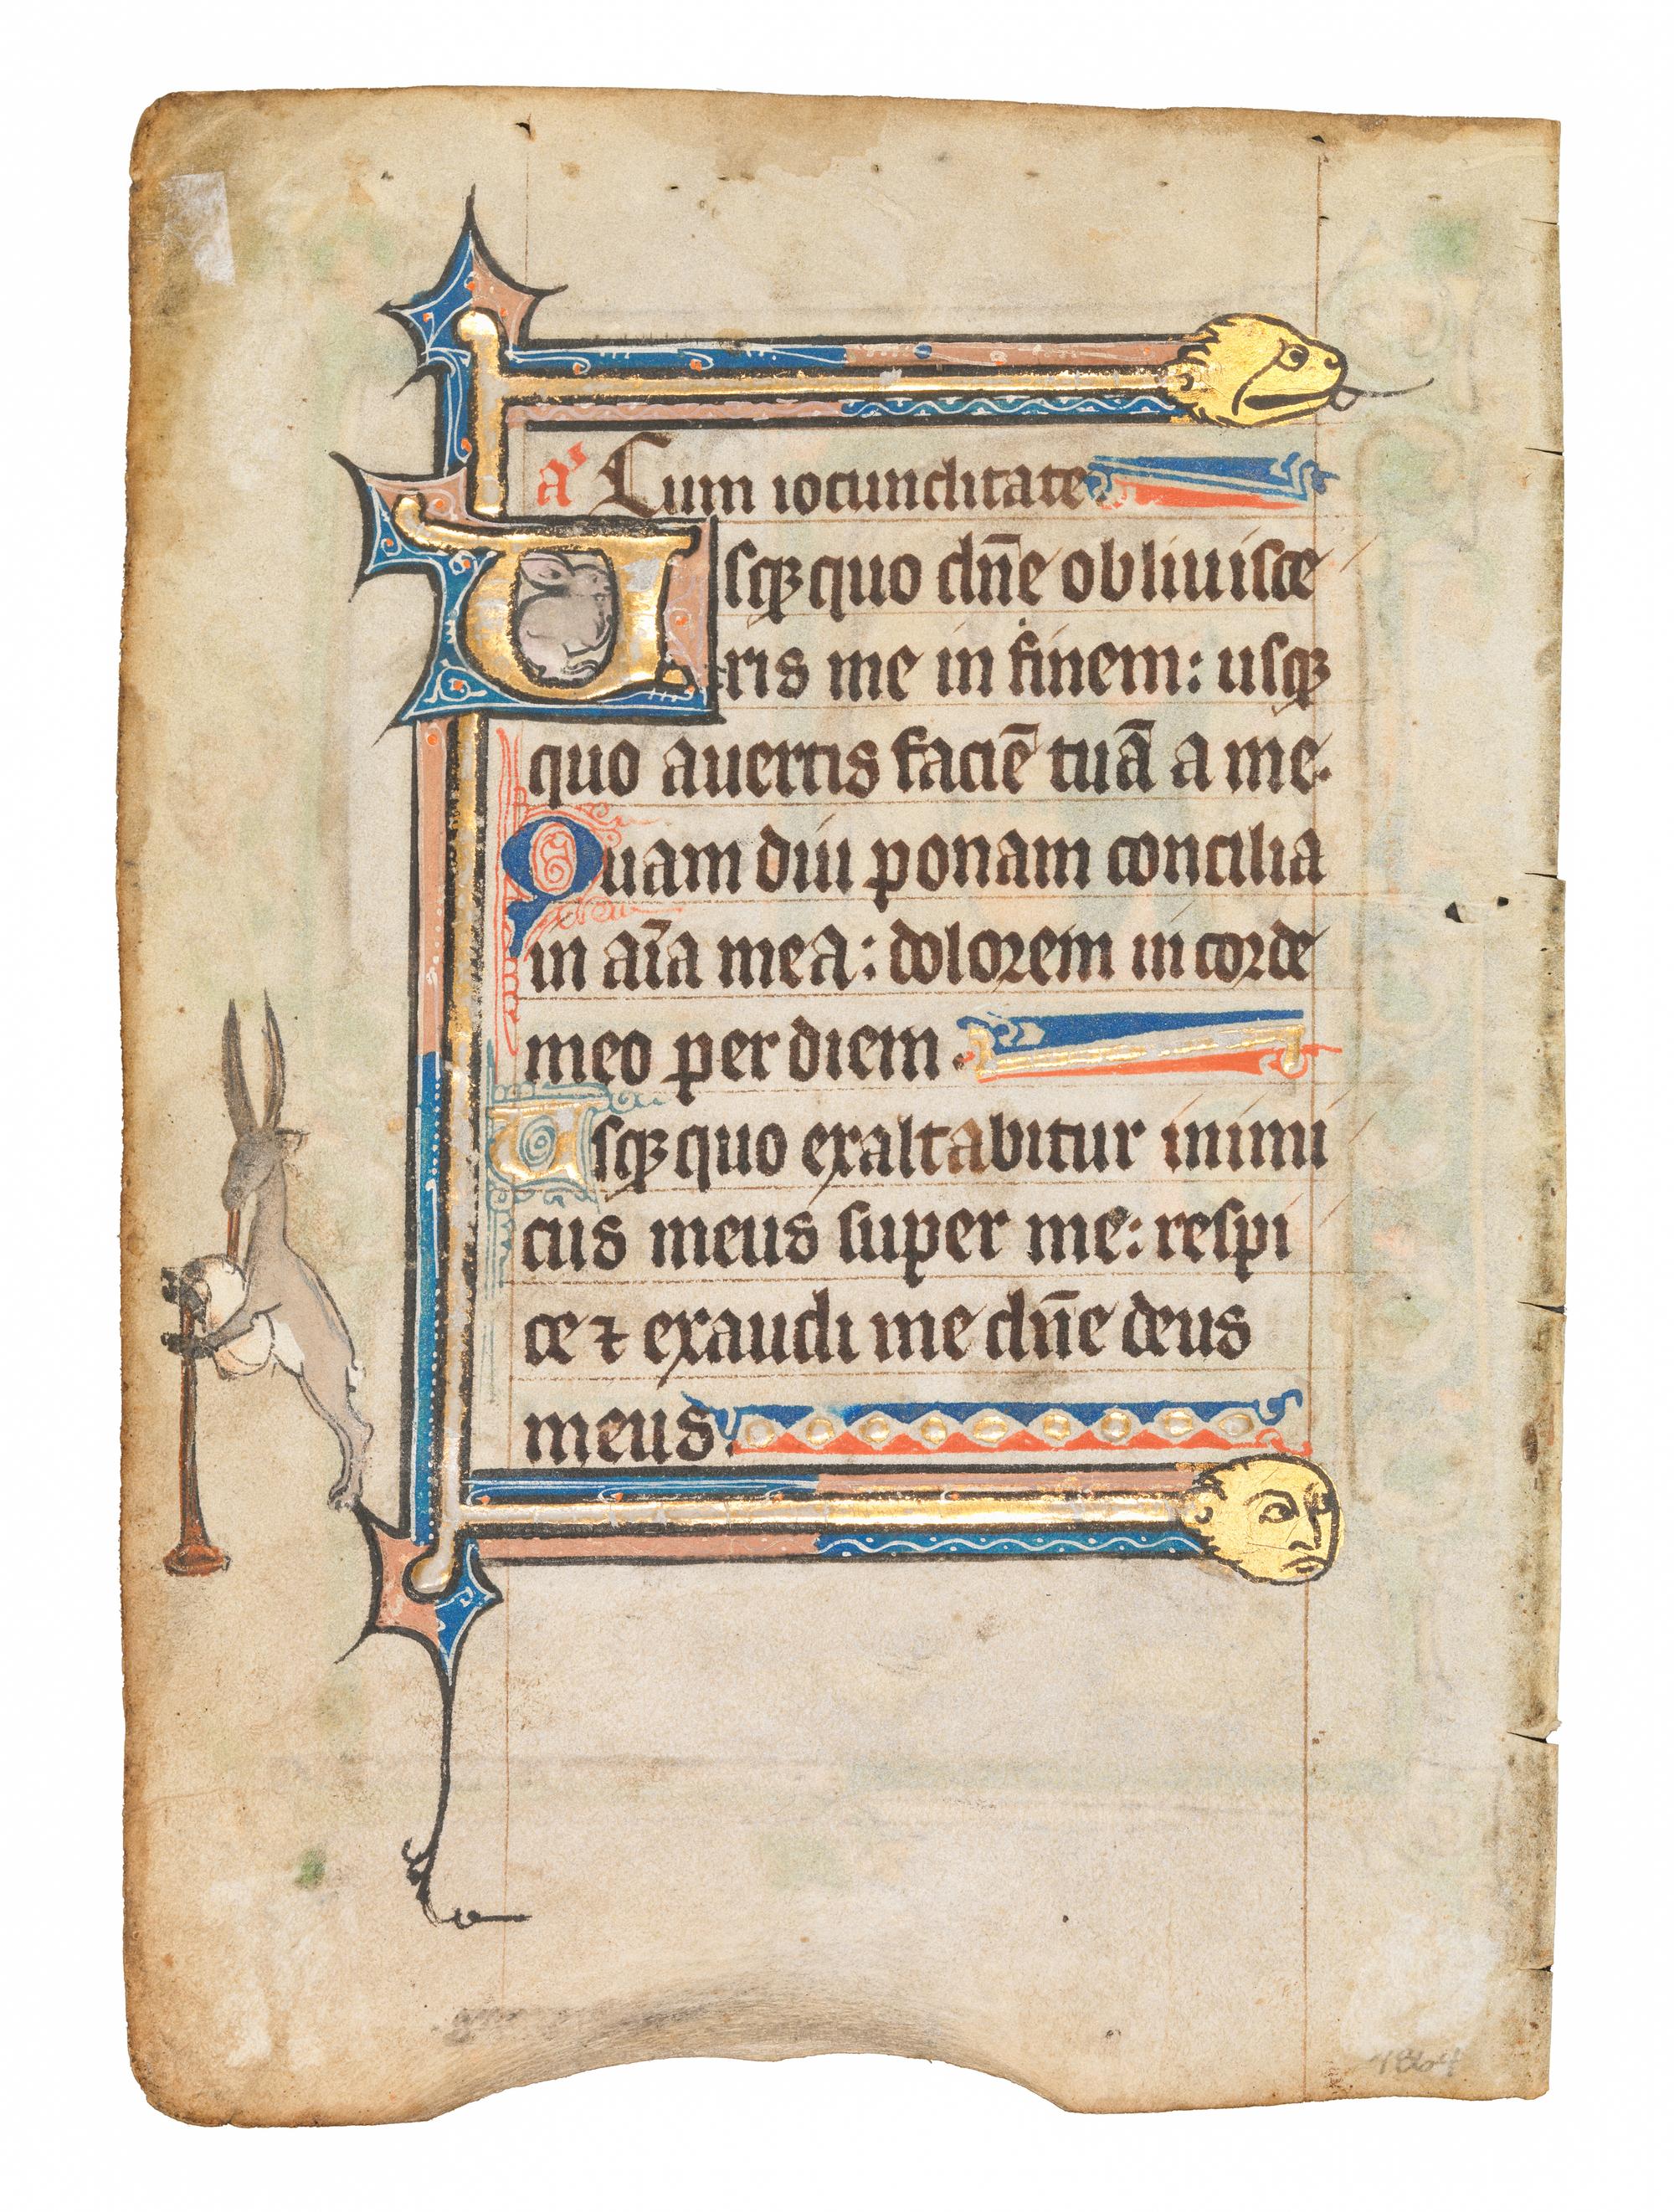 a᷒ Cum iocunditate
Usqꝫ quo dn̄e obliuisce
ris me in finem: usqꝫ
quo auertis faciē tuā a me.
Quam diu ponam concilia
in aīa mea: dolorem in corde
meo per diem.
Usqꝫ quo exaltabitur inimi
cus meus super me: respi
ce ⁊ exaudi me dn̄e deus
meus.